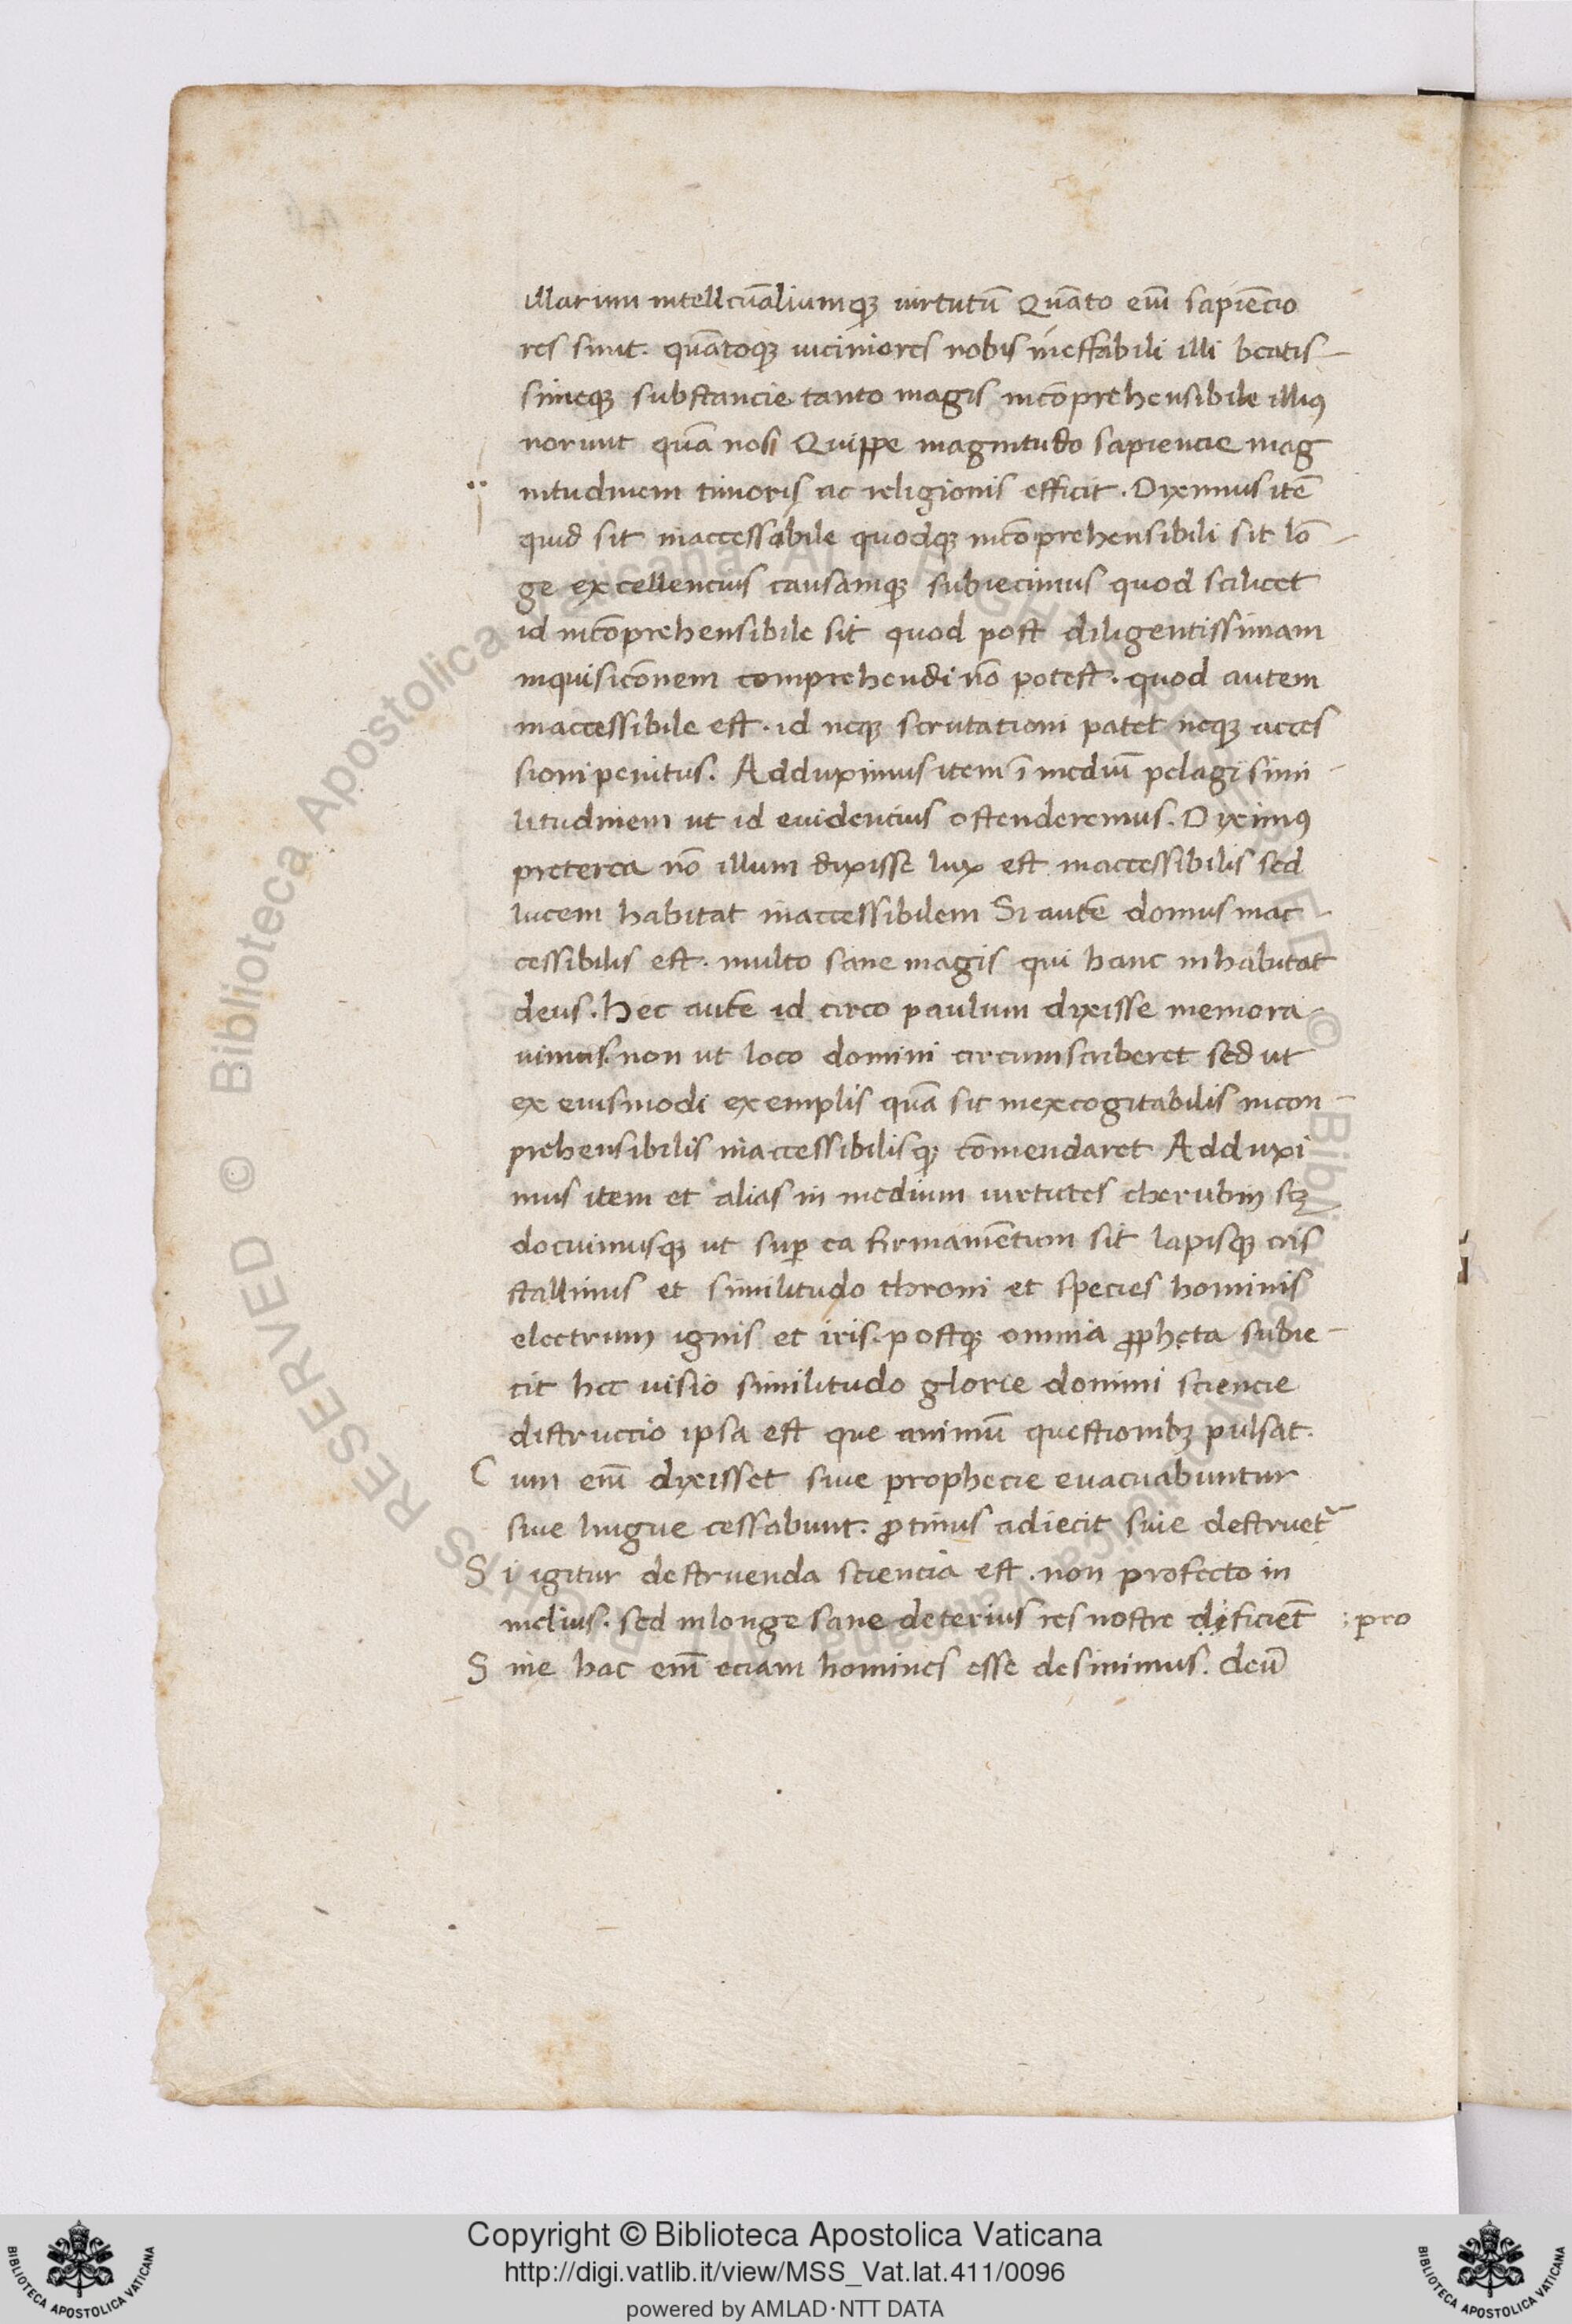 illarum intellcūaliumqꝫ uirtutū Quāto eīm sapiēcio
res sunt. quātoqꝫ uiciniores nobis ineffabili illi beatis-
simeqꝫ substancie tanto magis incōprehensibile illiꝰ
norunt quā nos Quippe magnitudo sapiencie mag
nitudinem timoris ac religionis efficit. Diximus itē
quid sit inaccessabile quodqꝫ incōprehensibili sit lō-
ge excellencius causamqꝫ subiecimus quod scilicet
id incōprehensibile sit quod post diligentissimam
inquisicōnem comprehendi nō potest. quod autem
inaccessibile est. id neqꝫ scrutationi patet neqꝫ acces
sioni penitus. Adduximus item ī mediū pelagi simi-
litudinem ut id euidencius ostenderemus. Diximꝰ
preterea nō illum dixisse lux est inaccessibilis sed
lucem habitat inaccessibilem Si autē domus inac-
cessibilis est. multo sane magis qui hanc inhabitat
deus. Hec autē id circo paulum dixisse memora-
uimus. non ut loco domini circumscriberet sed ut
ex eiusmodi exemplis quā sit inexcogitabilis incon-
prehensibilis inaccessibilisqꝫ cōmendaret Adduxi
mus item et alias in medium uirtutes cherubin scꝫ
docuimusqꝫ ut suꝑ ea firmamēntum sit lapisqꝫ cris
stallinus et similitudo throni et species hominis
electrum ignis et iris. postqꝫ omnia ꝓpheta subie-
cit hec uisio similitudo glorie domini sciencie
distruccio ipsa est que animū questionibꝫ pulsat.
Cum eīm dixisset siue prophecie euacuabuntur
siue lingue cessabunt. ꝓtinus adiecit siue destruet᷑
Si igitur destruenda sciencia est. non profecto in
melius. sed in longe sane deterius res nostre dificient̄ : pro
Sine hac eīm eciam homines esse desinimus. deū
Copyright © Biblioteca Apostolica Vaticana
http://digi.vatlib.it/view/MSS_Vat.lat.411/0096
powered by AMLAD·NTT DATA